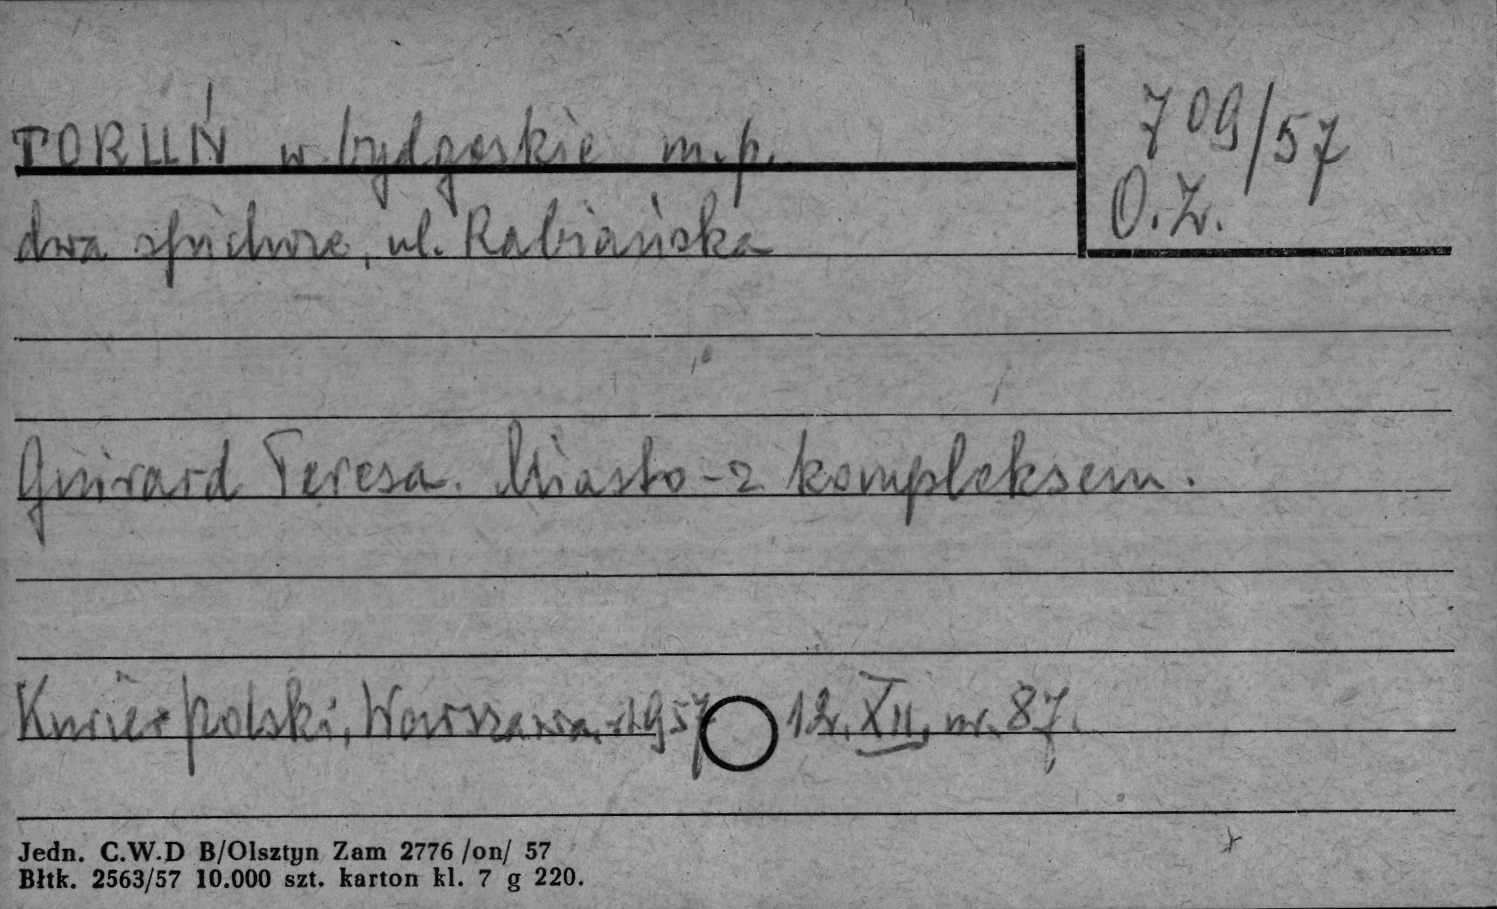 TORUŃ w. bydgoskie m.p.
709/57
O.Z.
dwa spichrze, ul. Rabiańska
Guirard Teresa. Miasto - z kompleksem.
Kurier Polski, Warszawa, 1957 12. XII, nr. 87.
Jedn. C.W.D B/Olsztyn Zam 2776 /on/ 57
Błtk. 2563/57 10.000 szt. karton kl. 7 g 220.